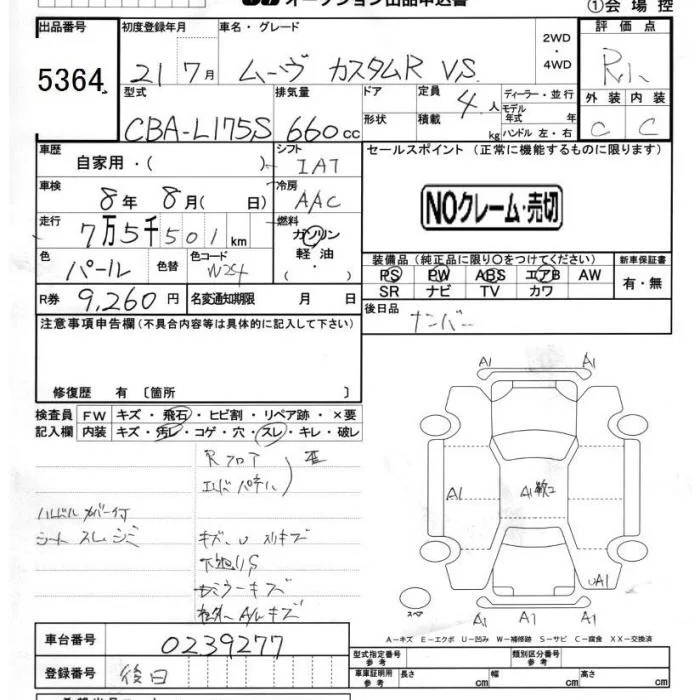 オークション出品申込書
①会場控
出品番号
5364
初度登録年月
21 7月
車名・グレード
ムーヴ カスタムR VS
2WD
・
4WD
評価点
外装 内装
C C
型式
CBA-L175S
排気量
660cc
ドア
形状
定員
4人
積載
kg
ディーラー・並行
モデル
年式 年
ハンドル 左・右
車歴
自家用・( )
シフト
IAT
セールスポイント (正常に機能するものに限ります)
NOクレーム・売切
車検
8年 8月( 日)
冷房
AAC
走行
7万5千501km
燃料
ガソリン
軽油
( ・ )
色
パール
色替
色コード
W24
装備品 (純正品に限り○をつけてください)
PS PW ABS エアB AW
SR ナビ TV カワ
新車保証書
有・無
R券
9,260円
名変通知期限 月 日
後日品
ナンバー
注意事項申告欄 (不具合内容等は具体的に記入して下さい)
修復歴 有 〔箇所 〕
検査員
記入欄
FW キズ・飛石・ヒビ割・リペア跡・×要
内装 キズ・汚レ・コゲ・穴・スレ・キレ・破レ
Rフロア
エンドパネル
歪
ハンドルカバー付
シート スレ シミ
キズ、U スリキズ
下廻りS
ミラーキズ
社外A/Wキズ
A1 A1
A1
A1
UA1
A1 A1 A1
スペア
A－キズ E－エクボ U－凹み W－補修跡 S－サビ C－腐食 XX－交換済
車台番号
0239277
登録番号
後日
型式指定番号
参考
類別区分番号
参考
車庫証明用
参考
長さ cm 幅 cm 高さ cm